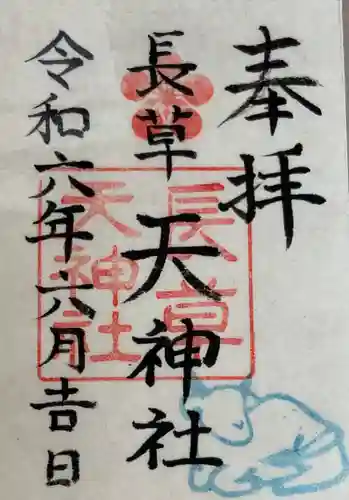 奉拝
長草天神社
長草天神社
令和六年六月吉日